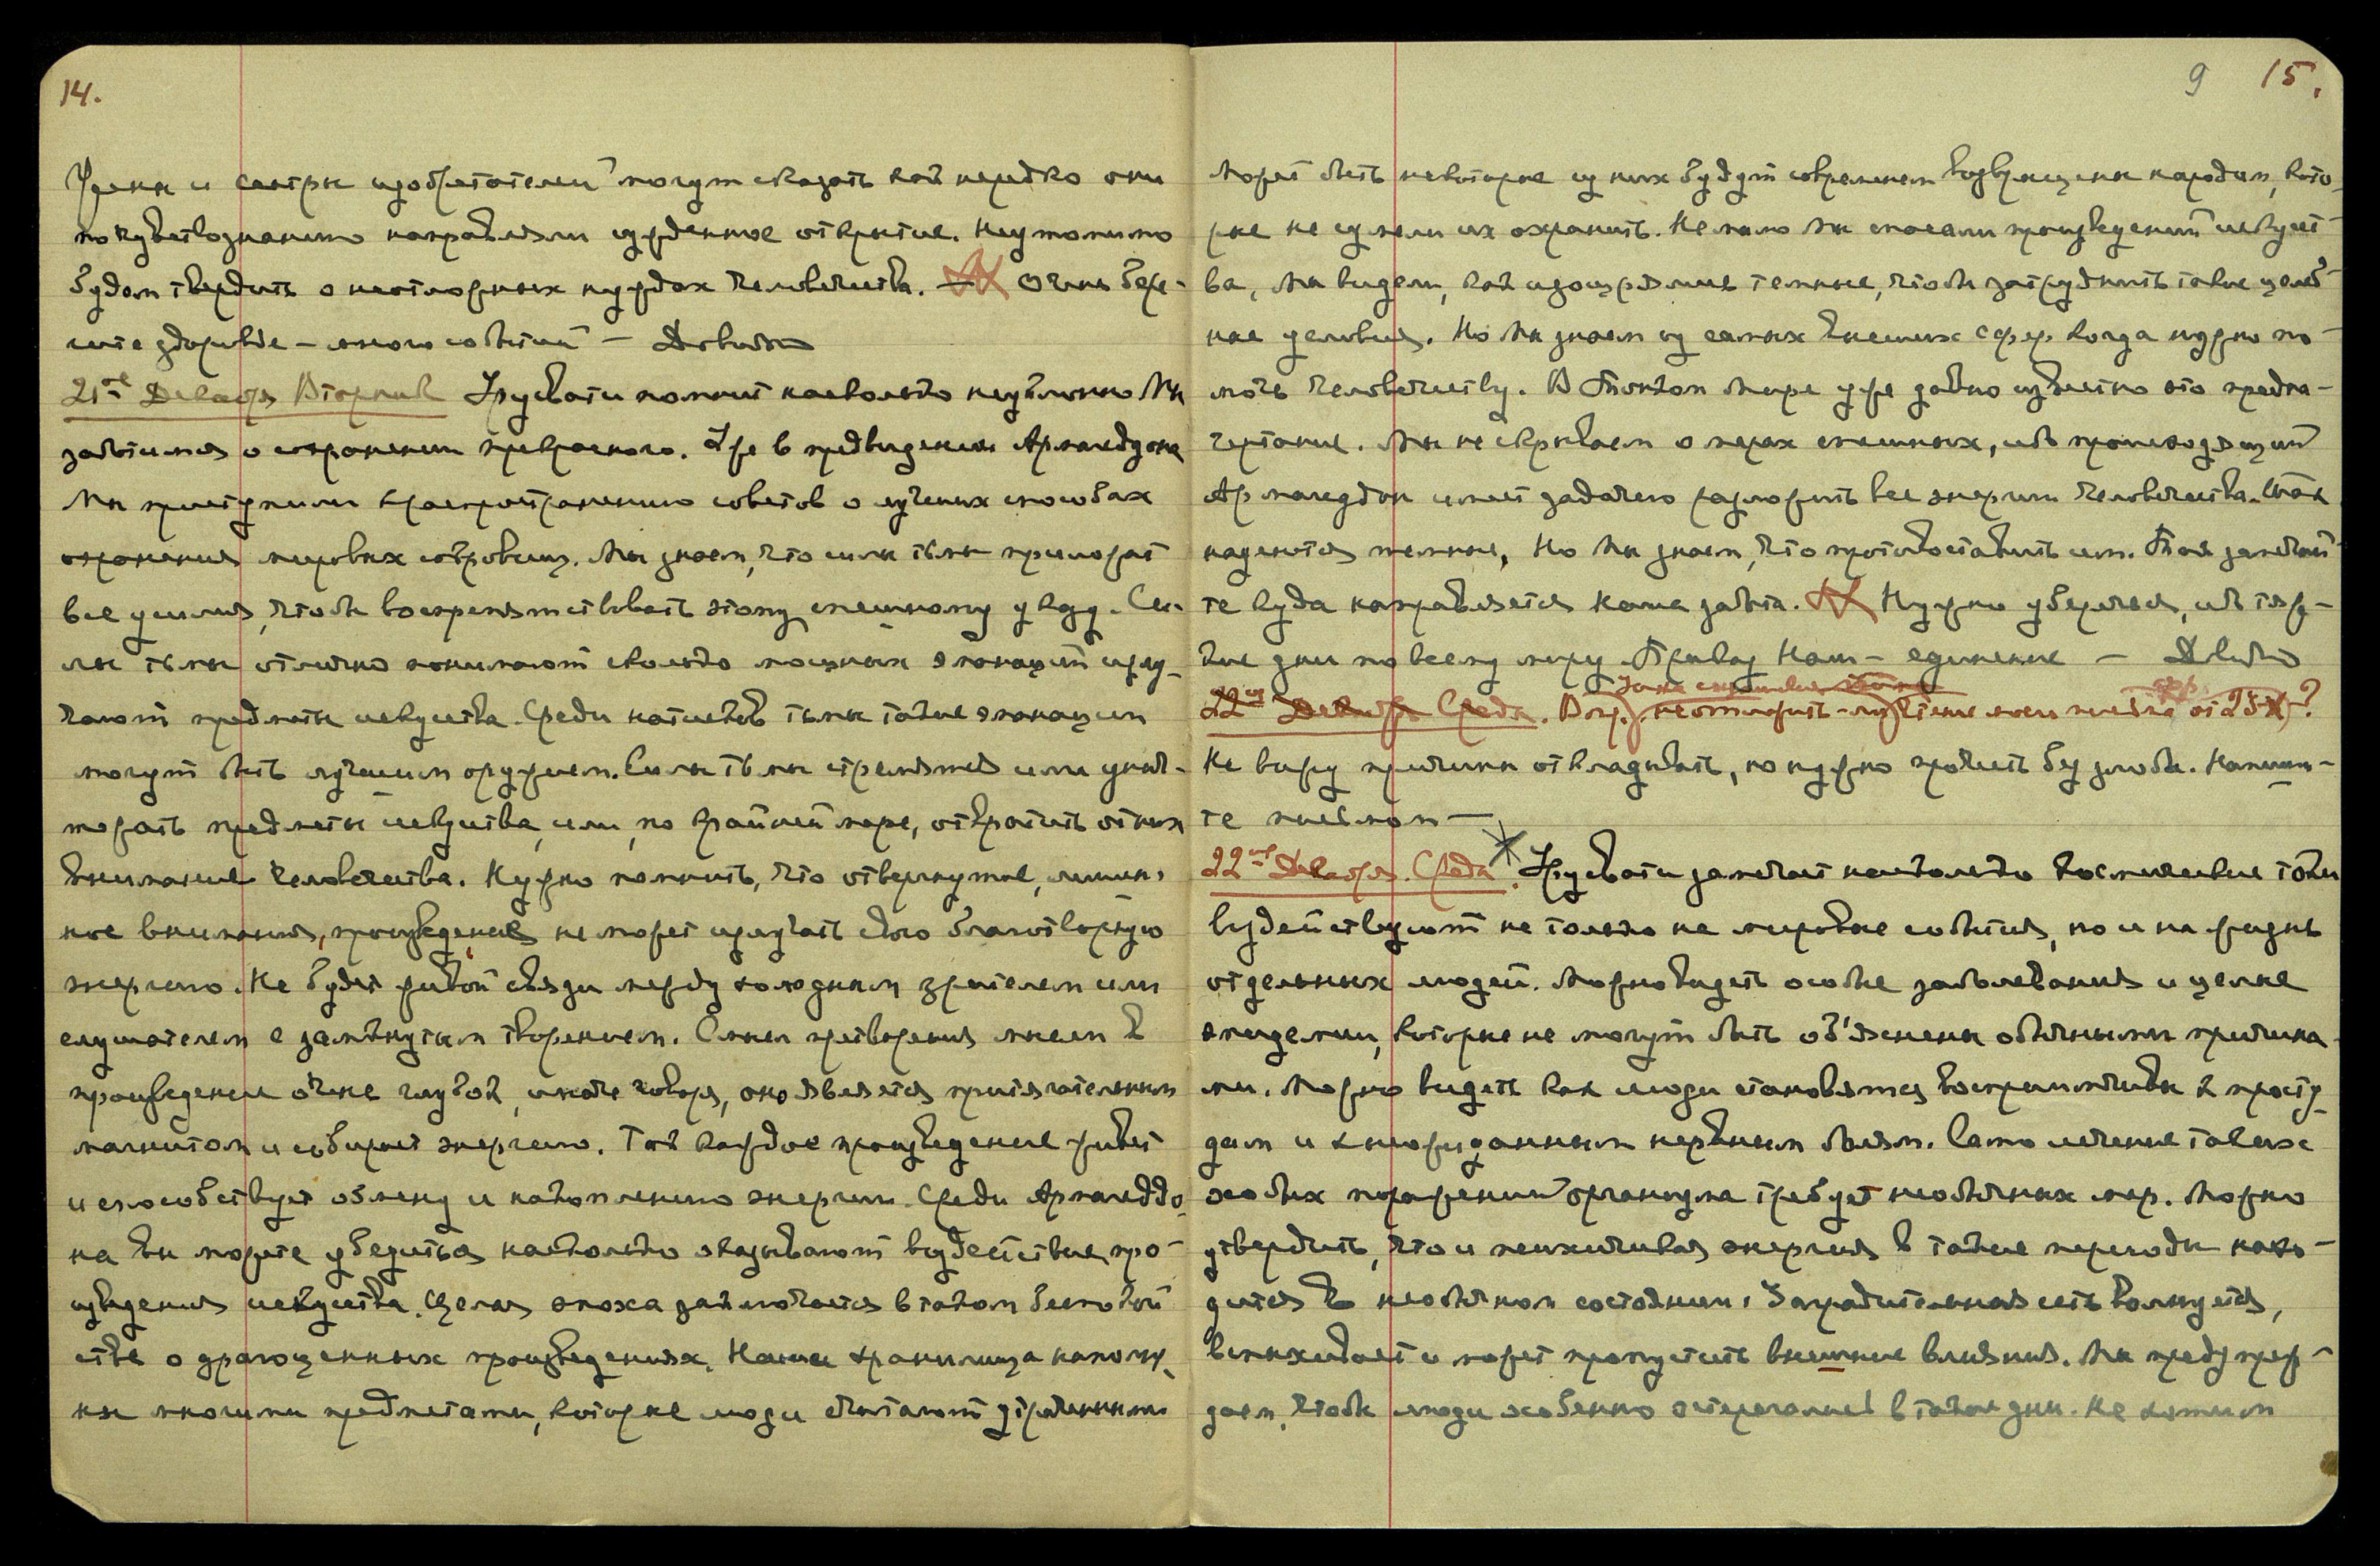 14.
Жены и сестры изобретателей могут сказать как нередко они
по чувствознанию направляли суженное открытие. Неутомимо
будем твердить о неотложных нуждах человечества. Очень бере-
гите здоровье – много событий – Довольно
21ое Декабря Вторник Урусвати помнит насколько неуклонно Мы
заботимся о сохранении прекрасного. Уже в предвидении Армагеддона
Мы приступили к распространению советов о лучших способах
охранения мировых сокровищ. Мы знаем, что силы тьмы приложат
все усилия, чтобы воспрепятствовать этому спешному указу. Си-
лы тьмы отлично понимают сколько мощных эманаций излу-
чают предметы искусства. Среди натисков тьмы такие эманации
могут быть лучшим оружием. Силы тьмы стремятся или унич-
тожать предметы искусства, или, по крайней мере, отвратить от них
внимание человечества. Нужно помнить, что отвергнутое, лишен-
ное внимания, произведение не может излучать свою благотворную
энергию. Не будет живой связи между холодным зрителем или
слушателем с замкнутым творением. Смысл претворения мысли в
произведение очень глубок, иначе говоря, оно является притягательным
магнитом и собирает энергию. Так каждое произведение живет
и способствует обмену и накоплению энергии. Среди Армагеддо-
на вы можете убедиться насколько оказывают воздействие про-
изведения искусства. Целая эпоха заключается в таком беспокой-
стве о драгоценных произведениях. Наши хранилища наполне-
ны многими предметами, которые люди считают утраченными
9 15.
Может быть некоторые из них будут современем возвращены народам, кото-
рые не сумели их охранить. Не мало Мы спасали произведений искусст-
ва, Мы видели, как изощрялись темные, чтобы затруднить такие целеб-
ные условия. Но Мы знаем из самых Высших Сфер когда нужно по-
мочь человечеству. В Тонком Мире уже давно известно это предна-
чертание. Мы не скрываем о мерах спешных, ибо происходящий
Армагеддон имеет задачею разложить все энергии человечества. Так
надеются темные, Но Мы знаем, что противопоставить им. Так замечай-
те куда направляется Наша забота. Нужно уберечься, ибо тяж-
кие дни по всему миру. Приказ Наш – единение – Довольно
22ое Декабря Среда. Вопр.
Не вижу причины откладывать, но нужно прочесть без злобы. Напиши-
те письмом —
22ое Декабря. Среда. Урусвати замечает насколько космические токи
воздействуют не только на мировые события, но и на жизнь
отдельных людей. Можно видеть особые заболевания и целые
эпидемии, которые не могут быть об'яснены обычными причина-
ми. Можно видеть как люди становятся восприимчивы к просту-
дам и к неожиданным нервным болям. Само лечение таких
особых поражений организма требует необычных мер. Можно
утвердить, что и психическая энергия в такие периоды нахо-
дится в необычном состоянии. Заградительная сеть волнуется,
вспыхивает и может пропустить внешние влияния. Мы предупреж-
даем, чтобы люди особенно остерегались в такие дни. Не хотим